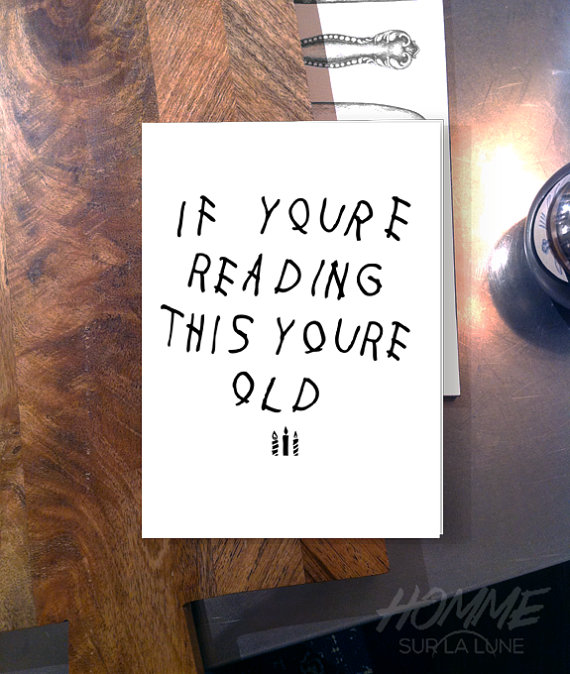 IF YOURE
READING
THIS YOURE
OLD
HOMME
SUR LA LUNE